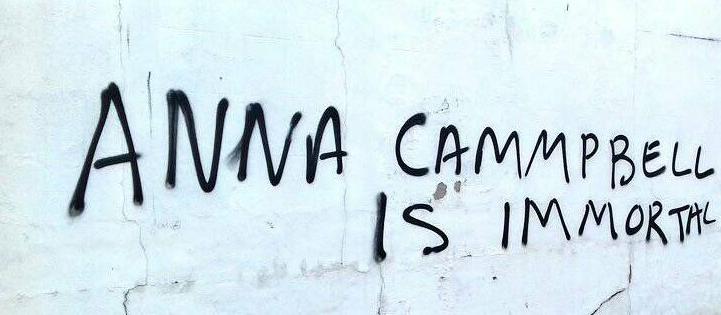 ANNA CAMMPBELL
IS IMMORTAL